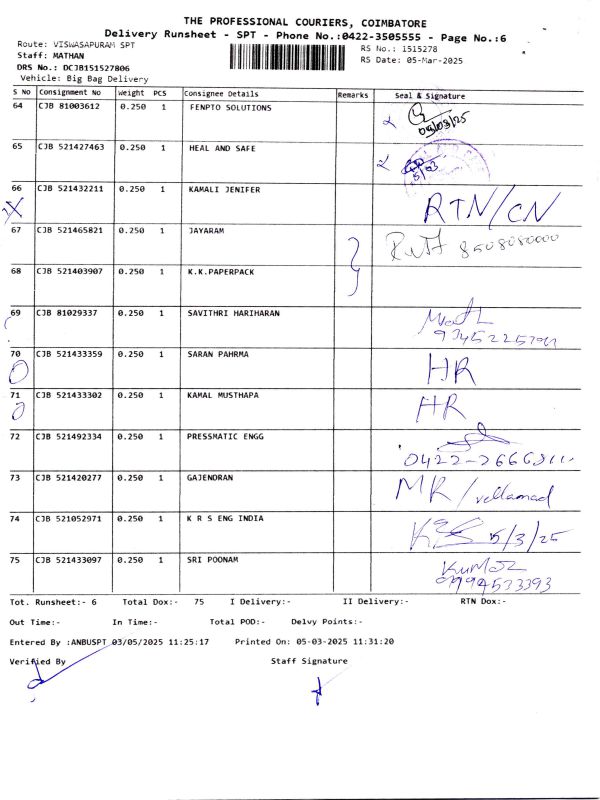 THE PROFESSIONAL COURIERS, COIMBATORE
Delivery Runsheet - SPT - Phone No.:0422-3505555 - Page No.:6
Route: VISWASAPURAM SPT
Staff: MATHAN
DRS No.: DCJB151527806
Vehicle: Big Bag Delivery
RS No.: 1515278
RS Date: 05-Mar-2025
S No Consignment No Weight PCS Consignee Details Remarks Seal & Signature
64 CJB 81003612 0.250 1 FENPTO SOLUTIONS 05/03/25
65 CJB 521427463 0.250 1 HEAL AND SAFE 5/03
66 CJB 521432211 0.250 1 KAMALI JENIFER RTN/CN
67 CJB 521465821 0.250 1 JAYARAM 8508080000
68 CJB 521403907 0.250 1 K.K.PAPERPACK
69 CJB 81029337 0.250 1 SAVITHRI HARIHARAN
70 CJB 521433359 0.250 1 SARAN PAHRMA HR
71 CJB 521433302 0.250 1 KAMAL MUSTHAPA HR
72 CJB 521492334 0.250 1 PRESSMATIC ENGG
73 CJB 521420277 0.250 1 GAJENDRAN MR/vellamad
74 CJB 521052971 0.250 1 K R S ENG INDIA 5/3/25
75 CJB 521433097 0.250 1 SRI POONAM Kumar
Tot. Runsheet:- 6 Total Dox:- 75 I Delivery:- II Delivery:- RTN Dox:-
Out Time:- In Time:- Total POD:- Delvy Points:-
Entered By :ANBUSPT 03/05/2025 11:25:17 Printed On: 05-03-2025 11:31:20
Verified By Staff Signature